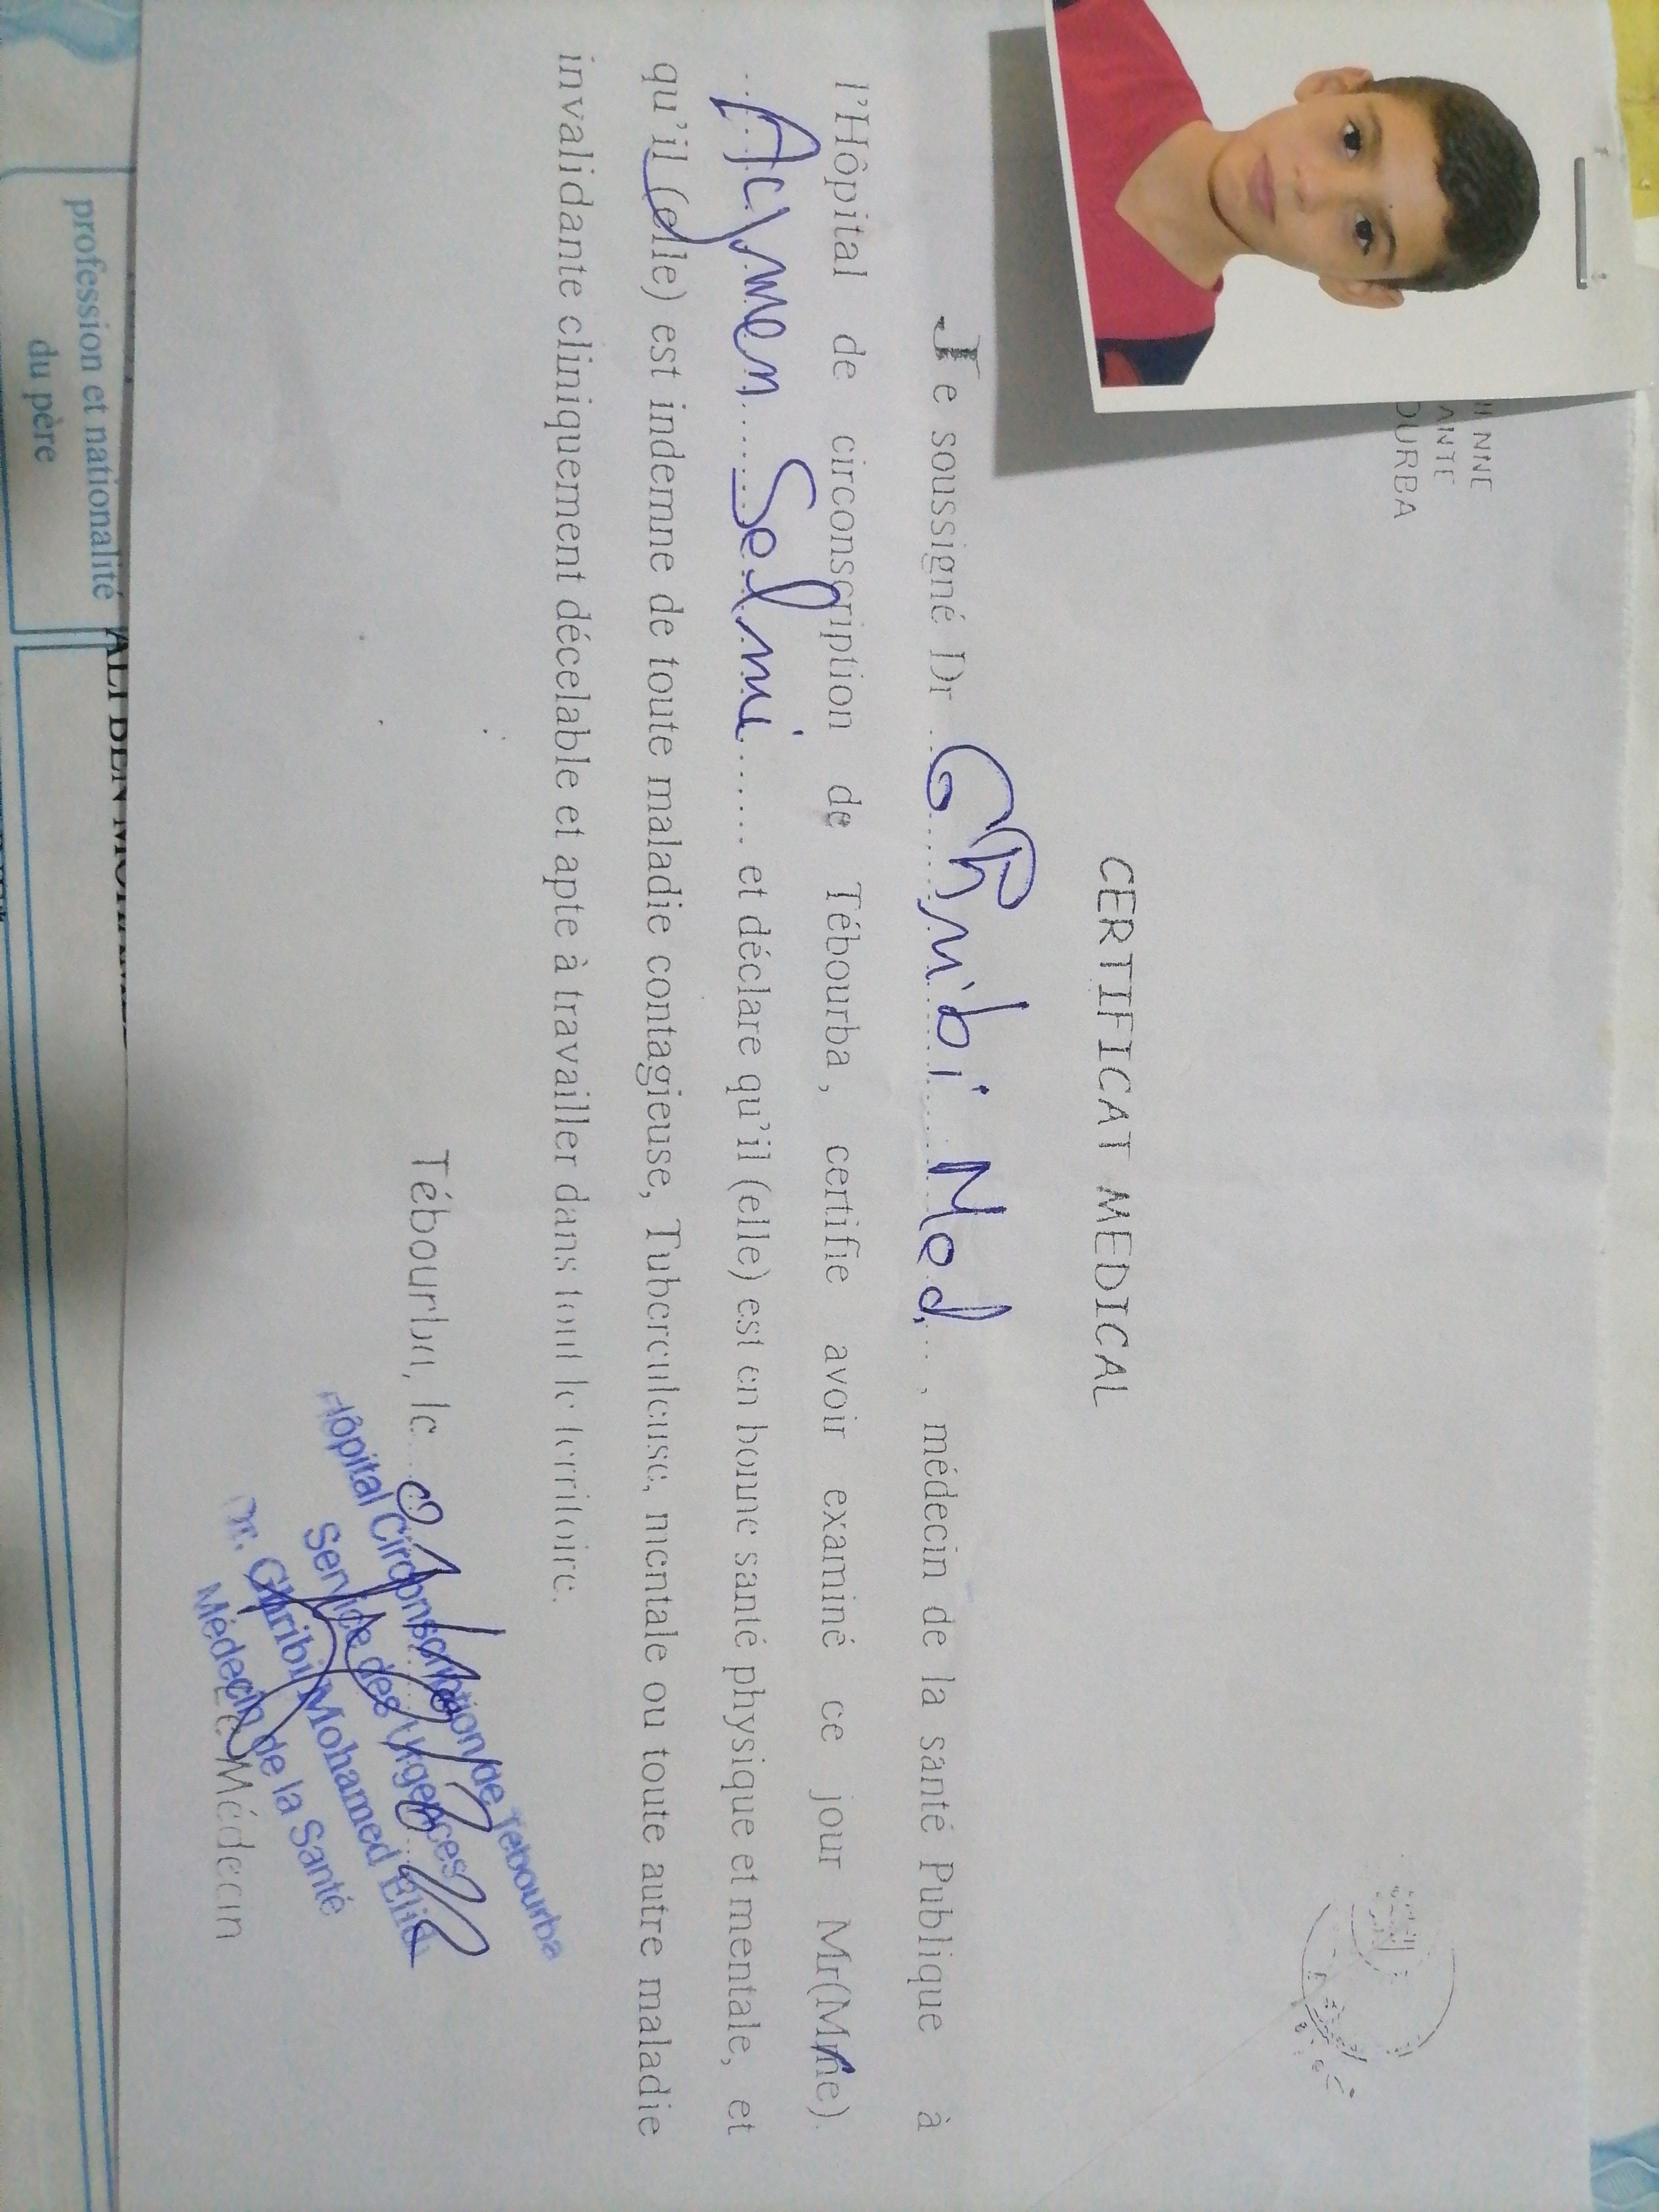 NNE
ANTE
OURBA
CERTIFICAT MEDICAL
Je soussigné Dr Ghribi Med, médecin de la santé Publique à
l'Hôpital de circonscription de Tébourba, certifie avoir examiné ce jour Mr(Mme)
Aymen Selmi et déclare qu'il (elle) est en bonne santé physique et mentale, et
qu'il (elle) est indemne de toute maladie contagieuse, Tuberculeuse, mentale ou toute autre maladie
invalidante cliniquement décelable et apte à travailler dans tout le territoire.
Tébourba, le
Hôpital Circonscription de Tebourba
Service des Urgences
Dr. Ghribi Mohamed
Médecin de la Santé
Le Médecin
profession et nationalité
du père
ALI BEN